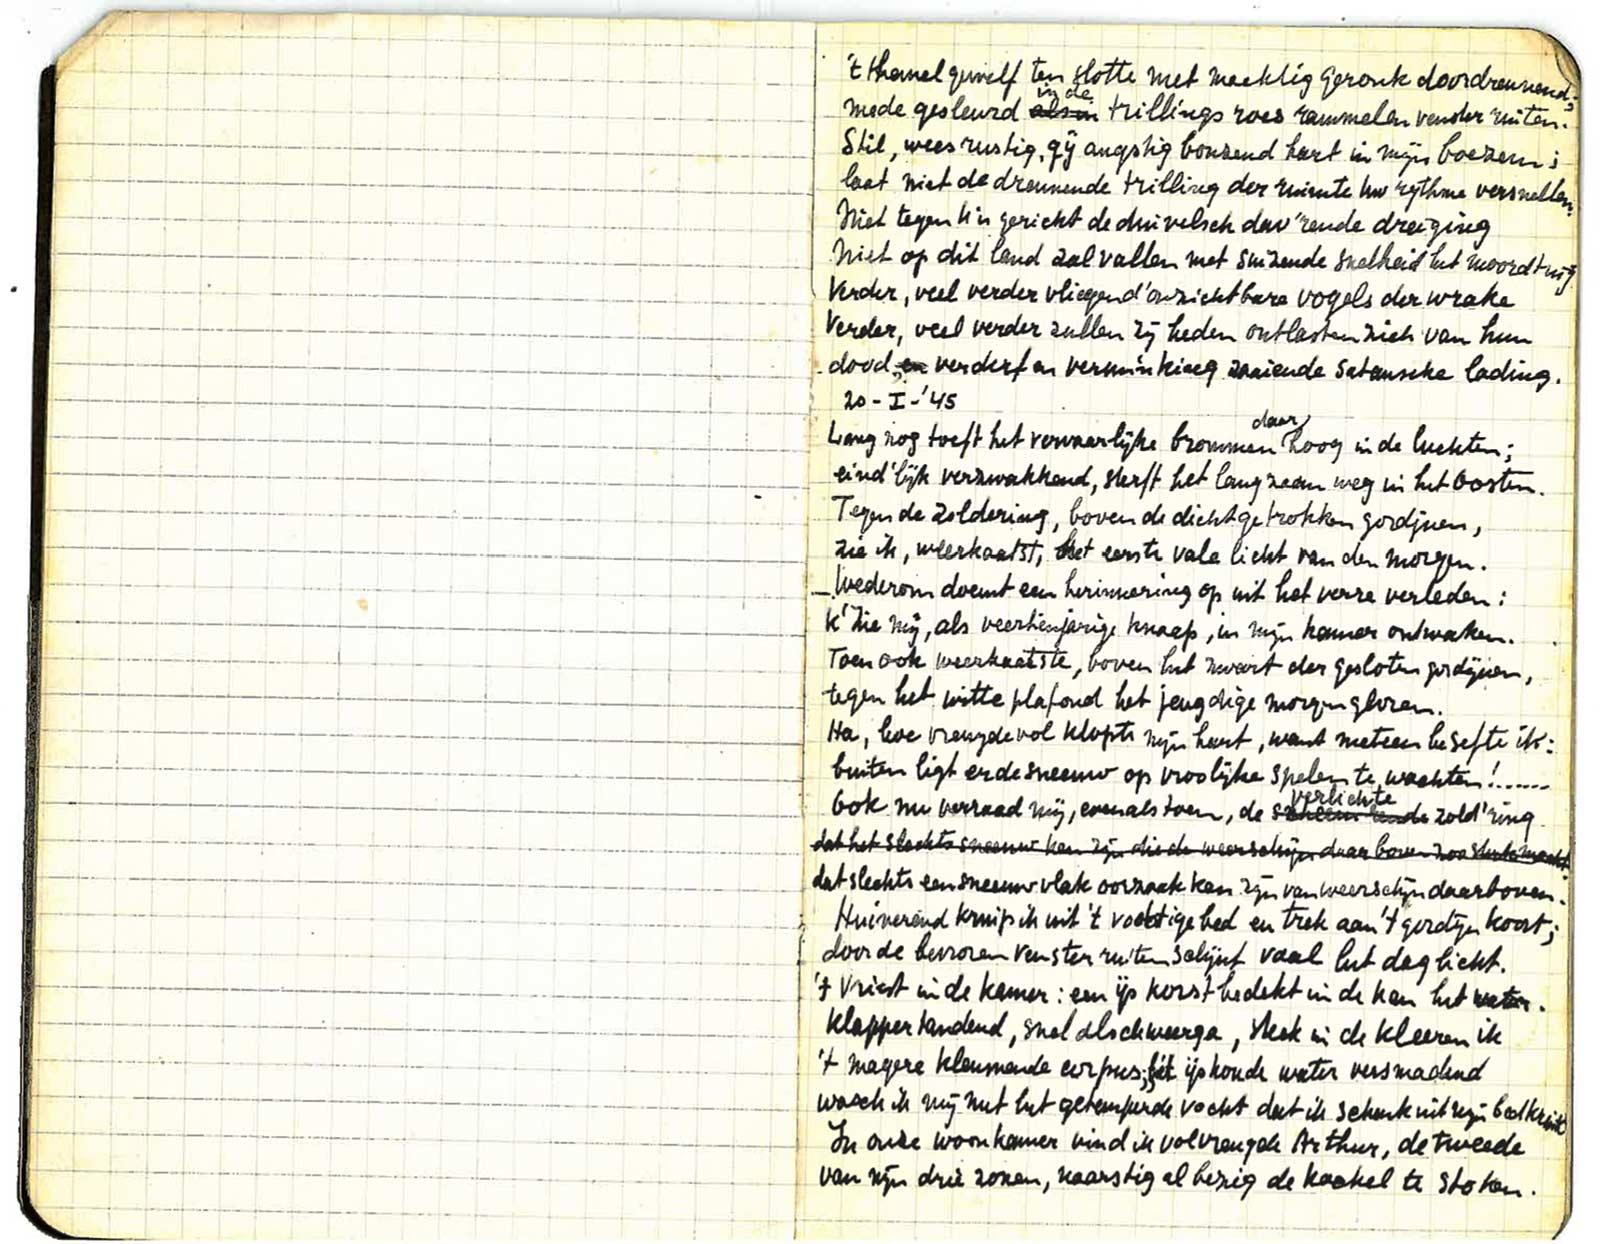 't Hemelgewelf ten slotte met machtig geronk doordreunend;
mede gesleurd ~~als in~~ in de trillings roes rammelen vensterruiten.
Stil, wees rustig, gij angstig bonzend hart in mijn boezem;
laat niet de dreunende trilling der ruimte uw rythme versnellen.
Niet tegen U is gericht de duivelsch dav'rende dreiging
Niet op dit land zal vallen met suizende snelheid het moordtuig
Verder, veel verder vliegen d'onzichtbare vogels der wrake
Verder, veel verder zullen zij heden ontlasten zich van hun
dood, ~~en~~ verderf en verminking zaaiende Satansche lading.
20-I-'45
Lang nog toeft het vervaarlijke brommen daar hoog in de luchten;
eind'lijk verzwakkend, sterft het langzaam weg in het Oosten.
Tegen de zoldering, boven de dichtgetrokken gordijnen,
zie ik, weerkaatst, het eerste vale licht van den morgen.
Wederom doemt een herinnering op uit het verre verleden:
k'Zie mij, als veertienjarige knaap, in mijn kamer ontwaken.
Toen ook weerkaatste, boven het zwart der gesloten gordijnen,
tegen het witte plafond het jeugdige morgengloren.
Ha, hoe vreugdevol klopte mijn hart, want meteen besefte ik:
buiten ligt er de sneeuw op vroolijke spelen te wachten!......
Ook nu verraad mij, evenals toen, de ~~scheem'rende~~ verlichte zold'ring
~~dat het slechts sneeuw kan zijn die de weerschijn daar boven zoo sterk maakt~~
dat slechts een sneeuwvlak oorzaak kan zijn van weerschijn daarboven.
Huiverend kruip ik uit 't vochtige bed en trek aan 't gordijnkoort;
door de bevroren vensterruiten schijnt vaal het daglicht.
't Vriest in de kamer: een ijskorst bedekt in de kan het water.
Klappertandend, snel als de weerga, steek in de kleeren ik
't magere kleumende corpus; het ijskoude water versmadend
wasch ik mij met het getemperde vocht dat ik schenk uit mijn bedkruik
In onze woonkamer vind ik volvreugde Arthur, de tweede
van mijn drie zonen, naarstig al bezig de kachel te stoken.